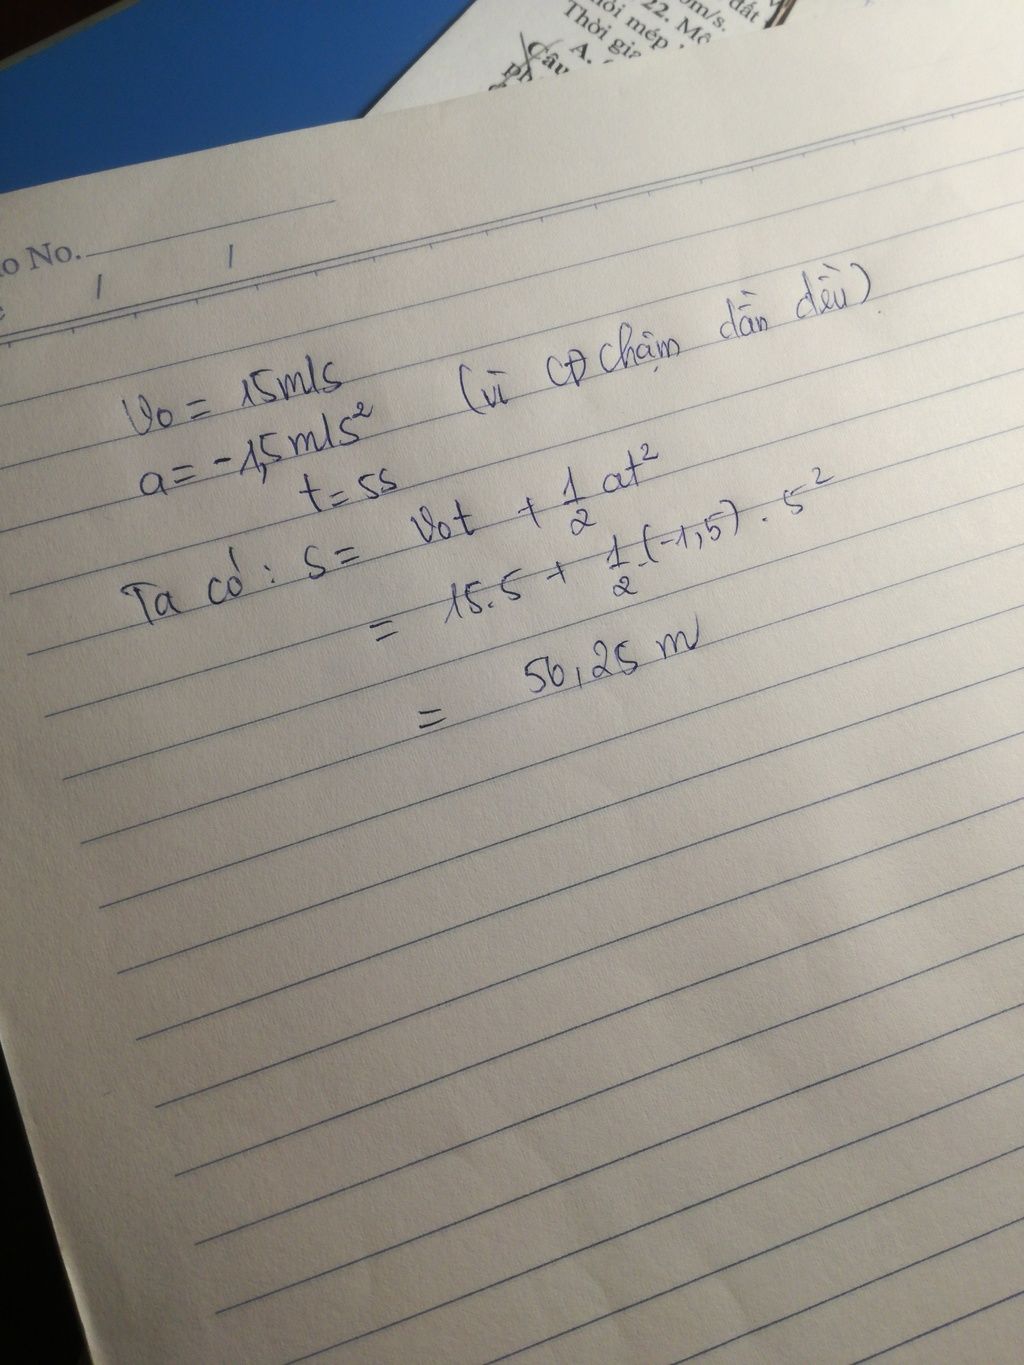 0m/s.
22. Mộ
Thời
A.
Câu
No.
/ /
v₀ = 15m/s
a = -1,5m/s² (vì CĐ chậm dần đều)
t = 5s
Ta có: S = v₀t + 1/2 at²
= 15.5 + 1/2.(-1,5).5²
= 56,25 m